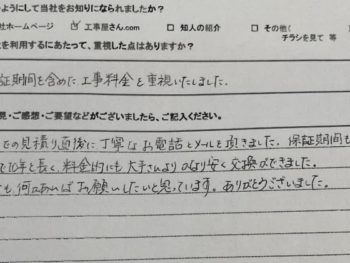 ようにして当社をお知りになられましたか?
社ホームページ ☑ 工事屋さん.com □ 知人の紹介 □ その他(
チラシを見て 等
を利用するにあたって、重視した点はありますか?
証期間を含めた工事料金を重視いたしました。
見・ご感想・ご要望などがございましたら、ご記入ください。
の見積り直後に丁寧なお電話とメールを頂きました。保証期間も
で10年と長く、料金的にも大手さんよりかなり安く交換ができました。
も何かあればお願いしたいと思っています。ありがとうございました。